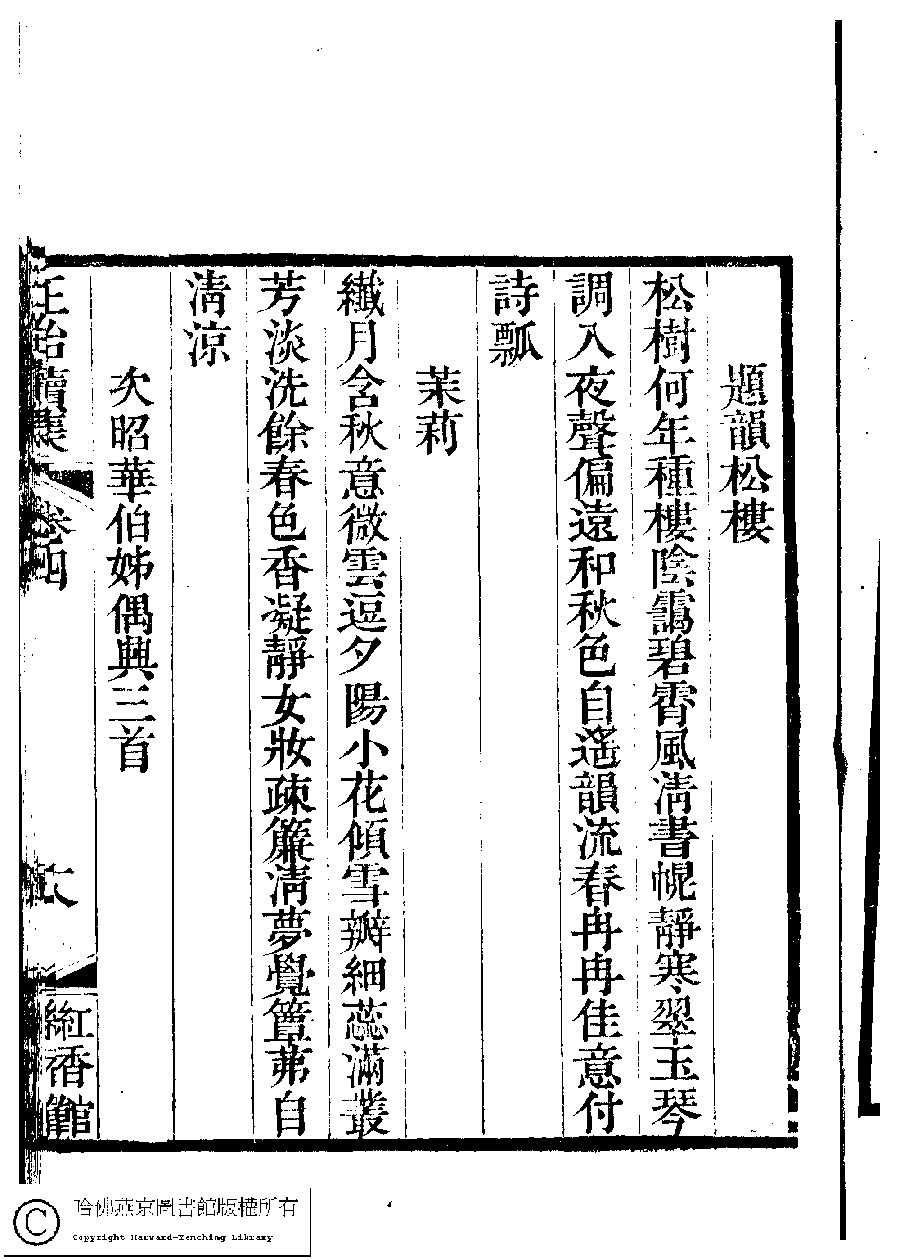 題韻松樓
松樹何年種樓陰靄碧霄風淸書幌靜寒翠玉琴
調入夜聲偏遠和秋色自遙韻流春冉冉佳意付
詩瓢
茉莉
纖月含秋意微雲逗夕陽小花傾雪瓣細蕊滿叢
芳淡洗餘春色香凝靜女妝疎簾淸夢覺簟茀自
淸凉
次昭華伯姊偶興三首
正始續集
卷四
紅香館
哈佛燕京圖書館版權所有
Copyright Harvard-Yenching Library